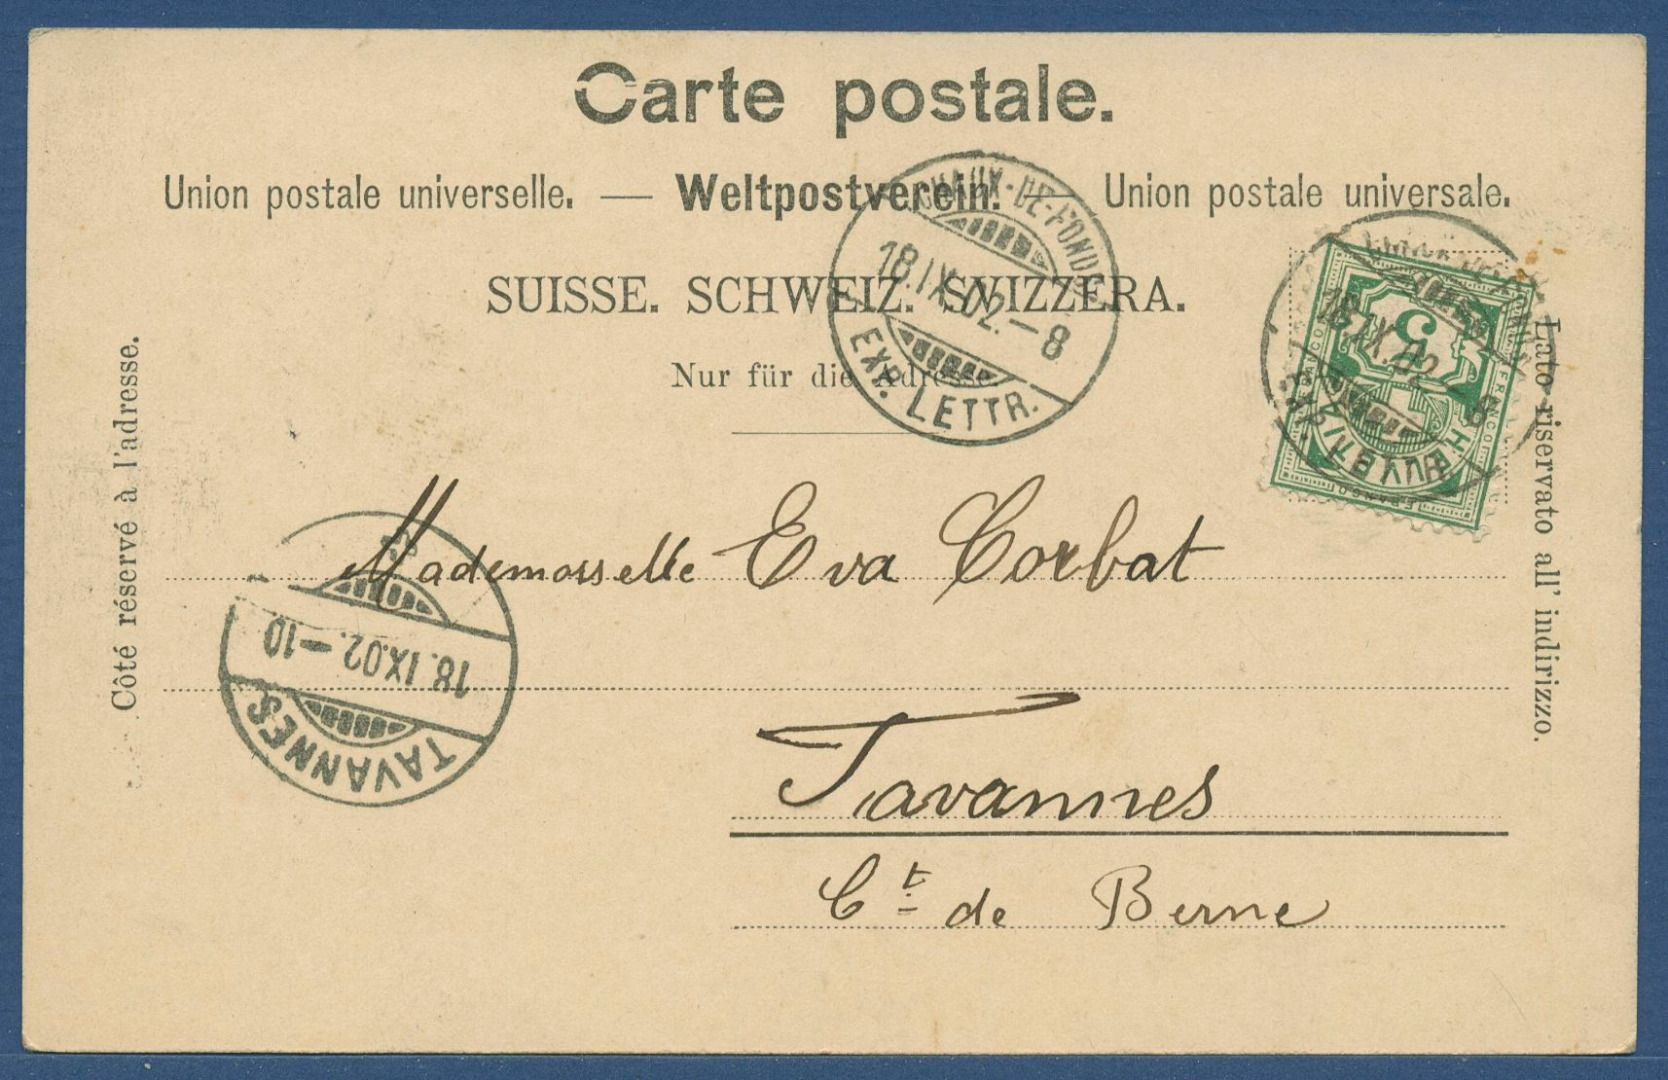 Carte postale.
Union postale universelle. — Weltpostverein. Union postale universale.
SUISSE. SCHWEIZ. SVIZZERA.
Nur für die Adresse.
Côté réservé à l'adresse.
Lato riservato all' indirizzo.
CHAUX-DE-FONDS
18.IX.02.—8
EXP. LETTR.
18.IX.02 8
5
FRANCO
HELVETIA
Mademoiselle Eva Corbat
Tavannes
Ct de Berne
18.IX.02.—10
TAVANNES